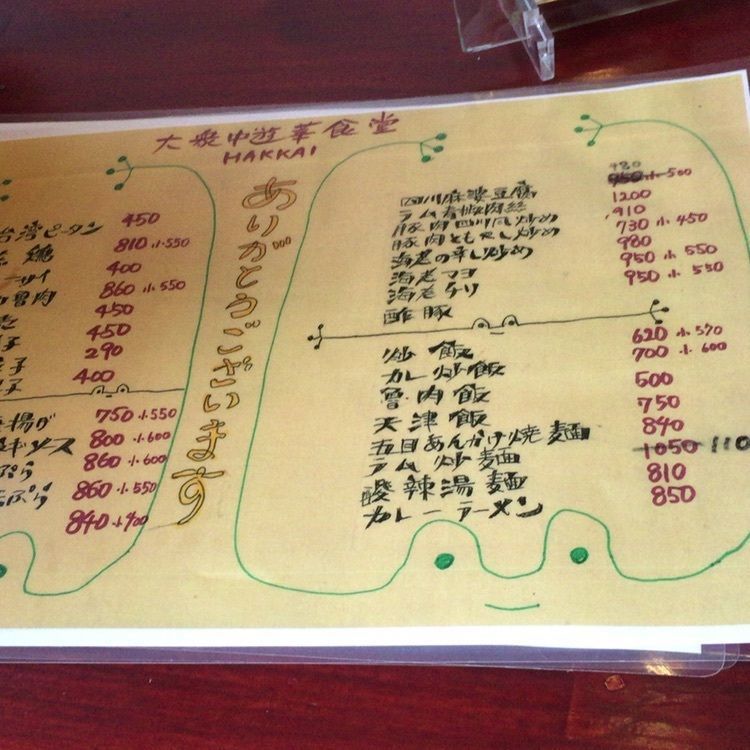 大衆中遊華食堂
HAKKAI
ありがとうございます
台湾ピータン 450
鶏 810 小550
サイ 400
魯肉 860 小550
450
子 450
子 290
子 400
揚げ 750 小550
ソース 800 小600
ぷら 860 小600
ぷら 860 小550
840 小400
四川麻婆豆腐 980 小500
ラム青椒肉絲 1200
豚肉四川風炒め 910
豚肉ともやし炒め 730 小450
海老の辛し炒め 980
海老マヨ 950 小550
海老チリ 950 小550
酢豚
炒飯 620 小570
カレー炒飯 700 小600
魯肉飯 500
天津飯 750
五目あんかけ焼麺 840
ラム炒麺 1050 110
酸辣湯麺 810
カレーラーメン 850